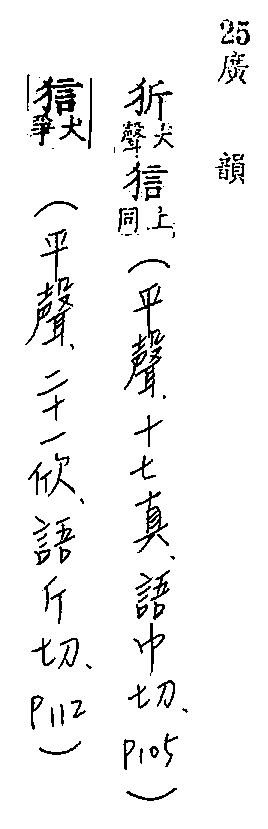 25廣韻
㹞犬聲狺上同(平聲、十七真、語巾切、P105)
狺犬爭(平聲、二十一欣、語斤切、P112)